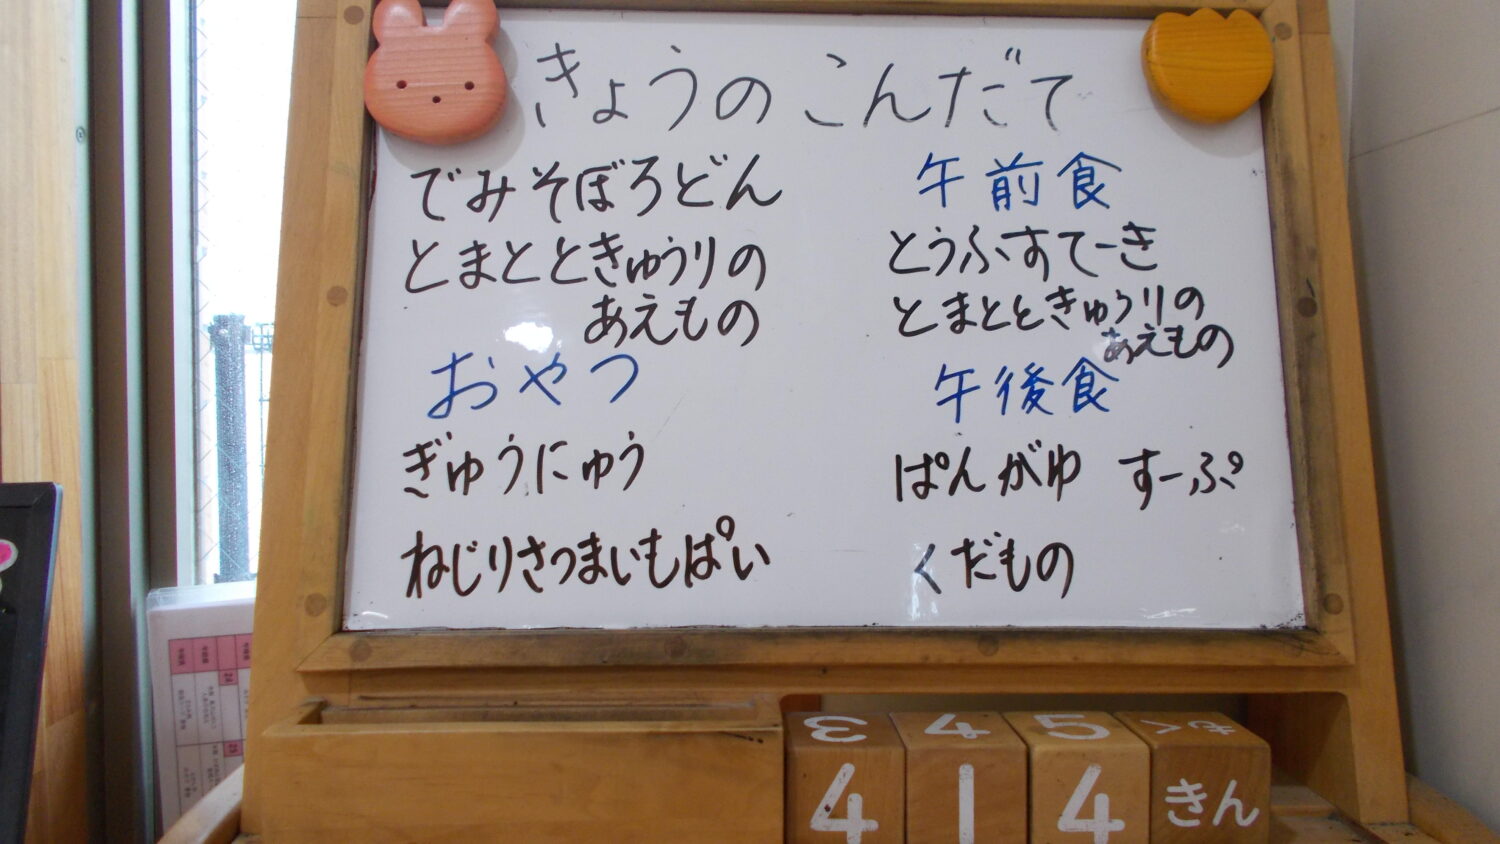 きょうのこんだて
でみそぼろどん
とまとときゅうりの
あえもの
おやつ
ぎゅうにゅう
ねじりさつまいもぱい
午前食
とうふすてーき
とまとときゅうりの
あえもの
午後食
ぱんがゆ すーぷ
くだもの
3 4 5 もく
4 1 4 きん
24
25